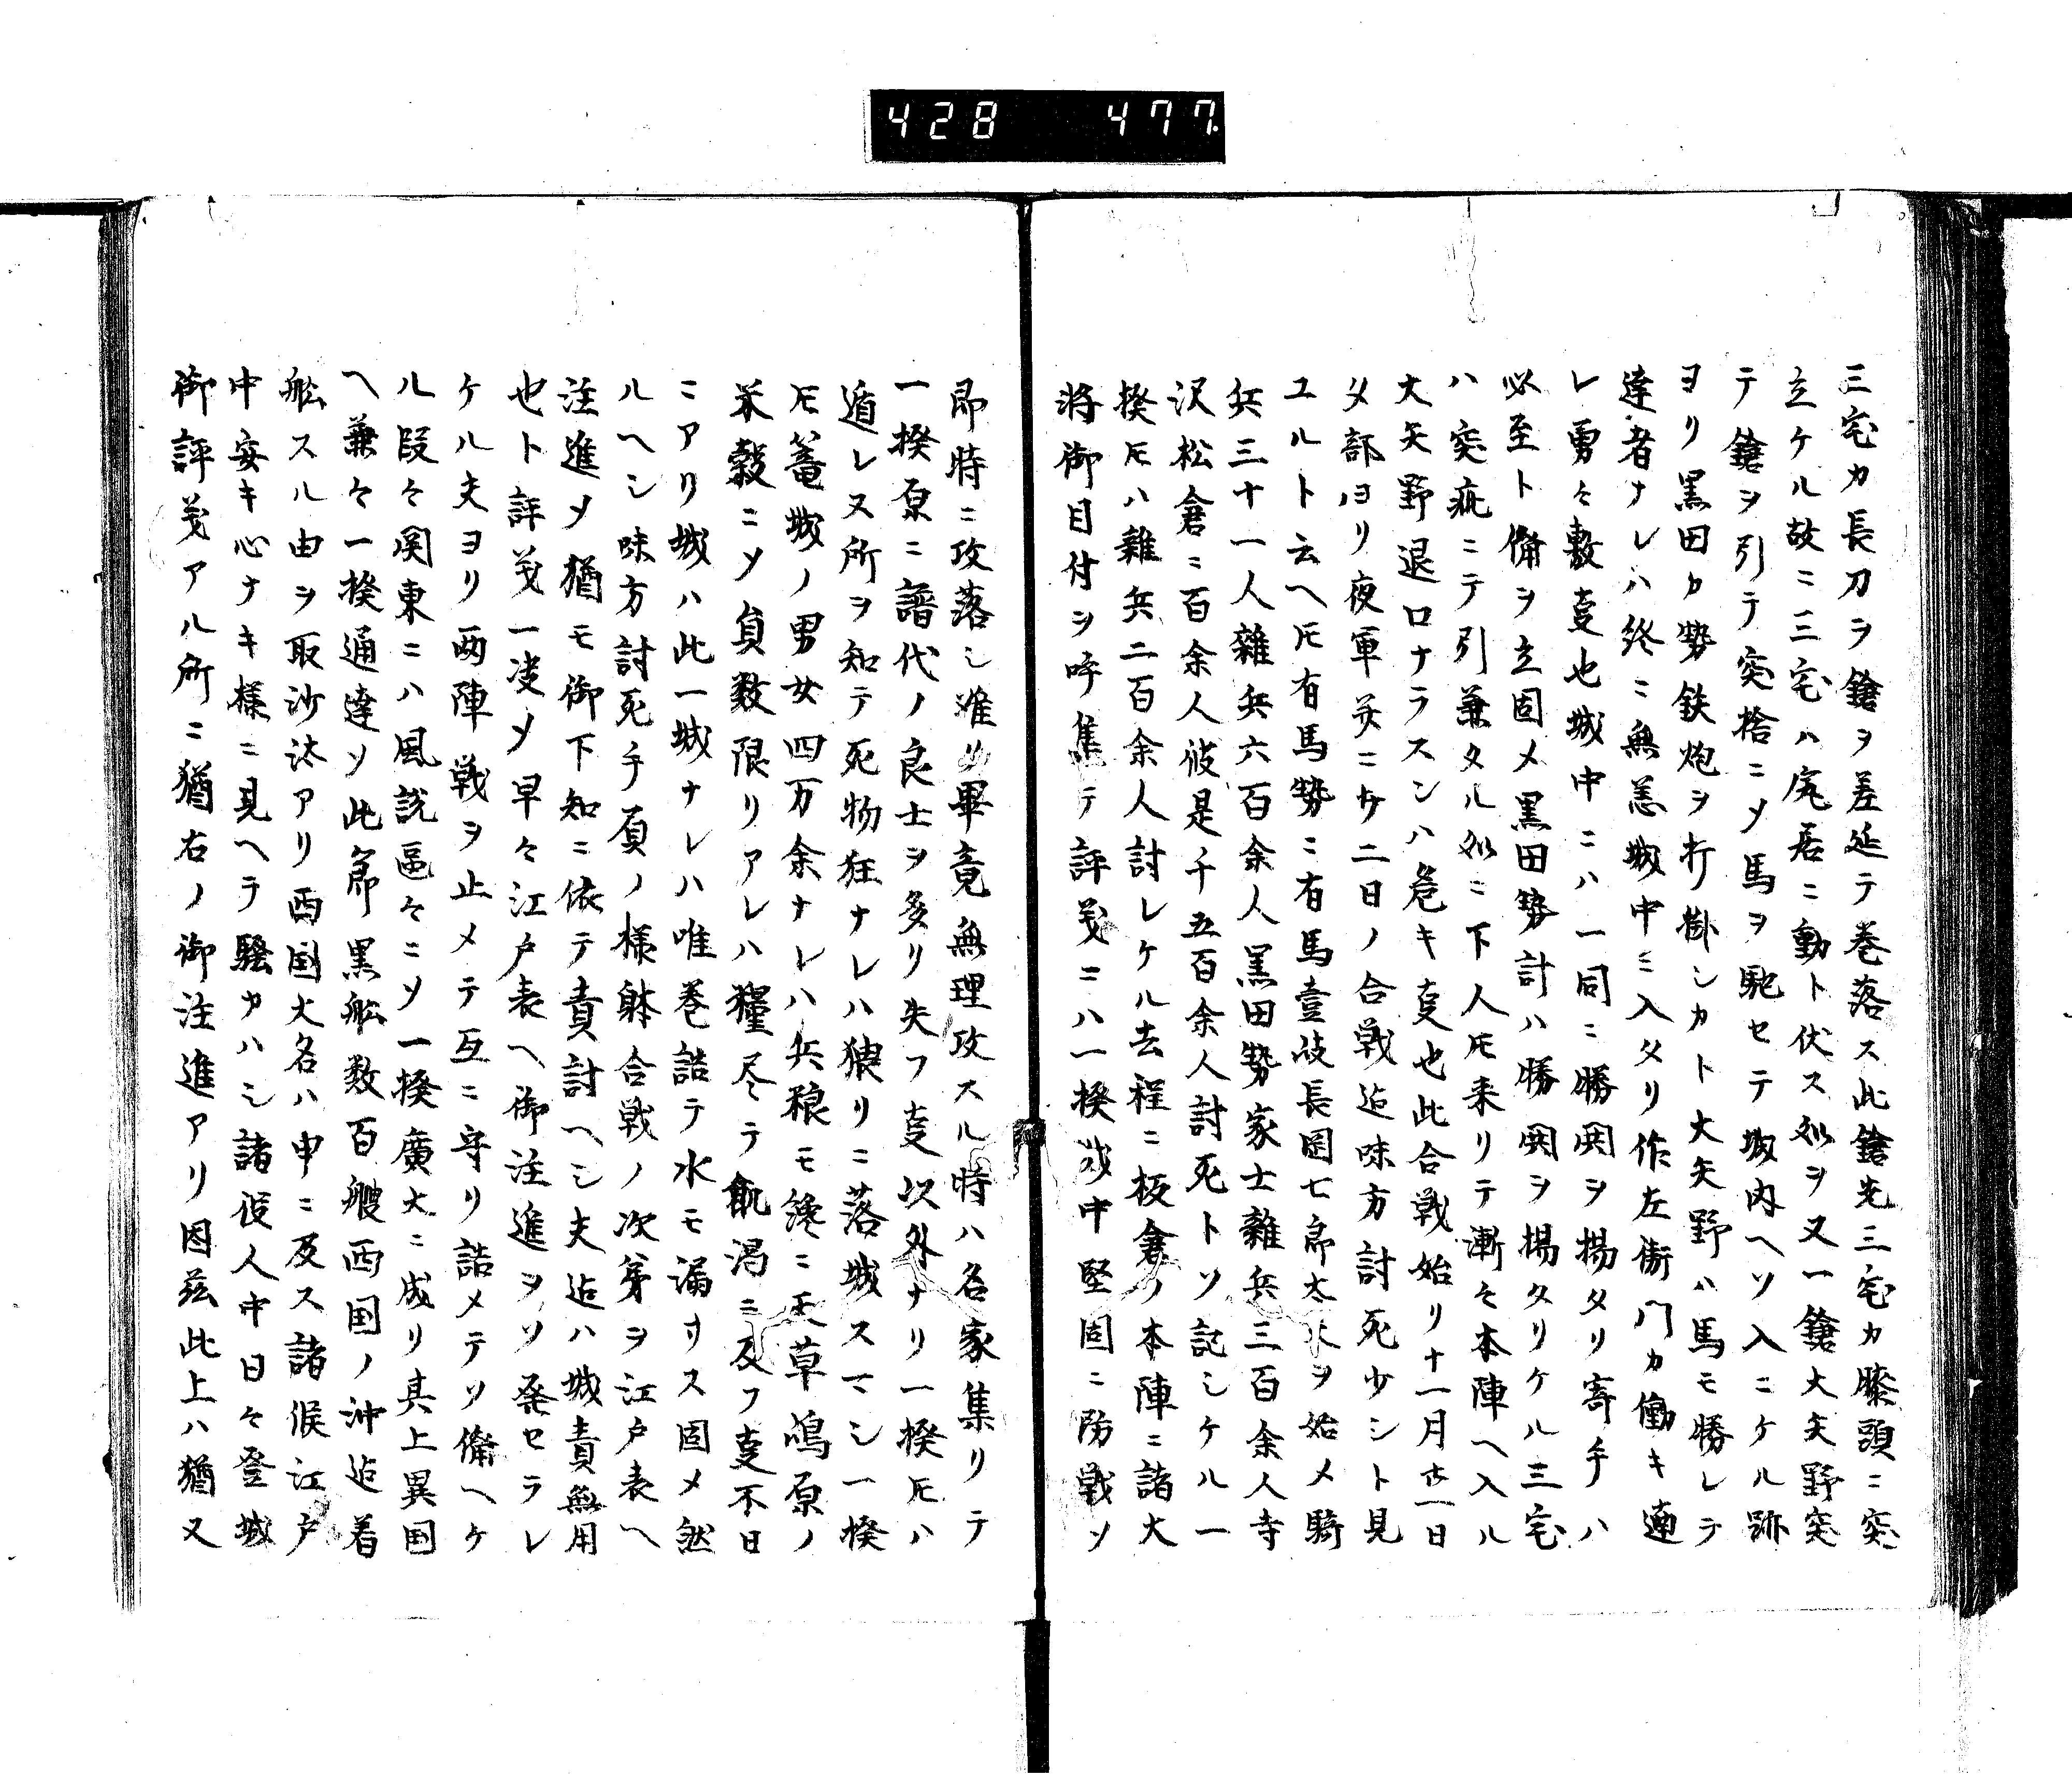 428 477
三宅カ長刀ヲ鎗ヲ差延テ巻落ス此鎗先三宅カ膝頭ニ突
立ケル故ニ三宅ハ尻居ニ動ト伏ス処ヲ又一鎗大矢野突
テ鎗ヲ引テ突捨ニメ馬ヲ馳セテ城内ヘソ入ニケル跡
ヨリ黒田カ勢鉄炮ヲ打掛シカト大矢野ハ馬モ勝レテ
達者ナレハ終ニ無恙城中ニ入タリ作左衛門カ働キ適
レ勇々敷㕝也城中ニハ一同ニ勝閧ヲ揚タリ寄手ハ
必至ト備ヲ立固メ黒田勢計ハ勝閧ヲ揚タリケル三宅
ハ突疵ニテ引兼タル処ニ下人𪜈来リテ漸々本陣ヘ入ル
大矢野退口ナラスンハ危キ㕝也此合戦始リ十一月廿一日
夕部ヨリ夜軍共ニ廿二日ノ合戦迠味方討死少シト見
ユルト云ヘ𪜈有馬勢ニ有馬壹岐長岡七郎太夫ヲ始メ騎
兵三十一人雜兵六百余人黒田勢家士雜兵三百余人寺
沢松倉ニ百余人彼是千五百余人討死トソ記シケル一
揆𪜈ハ雜兵二百余人討レケル去程ニ板倉ノ本陣ニ諸大
将御目付ヲ呼集テ評義ニハ一揆城中堅固ニ防戦ソ
即時ニ攻落シ難リ畢竟無理攻スル時ハ名家集リテ
一揆原ニ譜代ノ良士ヲ多リ失フ㕝以外ナリ一揆𪜈ハ
遁レヌ所ヲ知テ死物狂ナレハ猥リニ落城スマシ一揆
𪜈篭城ノ男女四万余ナレハ兵粮モ纔ニ天草嶋原ノ
米穀ニメ員数限リアレハ糧尽テ飢渇ニ及フ㕝不日
ニアリ城ハ此一城ナレハ唯巻詰テ水モ漏サス固メ然
ルヘシ味方討死手負ノ様躰合戦ノ次第ヲ江戸表ヘ
注進メ猶モ御下知ニ依テ責討ヘシ夫迠ハ城責無用
也ト評義一决メ早々江戸表ヘ御注進ヲソ発セラレ
ケル夫ヨリ両陣戦ヲ止メテ互ニ守リ詰メテソ備ヘケ
ル段々関東ニハ風説區々ニソ一揆廣大ニ成リ其上異国
ヘ兼々一揆通達ソ此節黒舩数百艘西国ノ沖迠着
舩スル由ヲ取沙汰アリ西国大名ハ申ニ及ス諸侯江戸
中安キ心ナキ様ニ見ヘテ騒カハシ諸役人中日々登城
御評義アル所ニ猶右ノ御注進アリ因茲此上ハ猶又